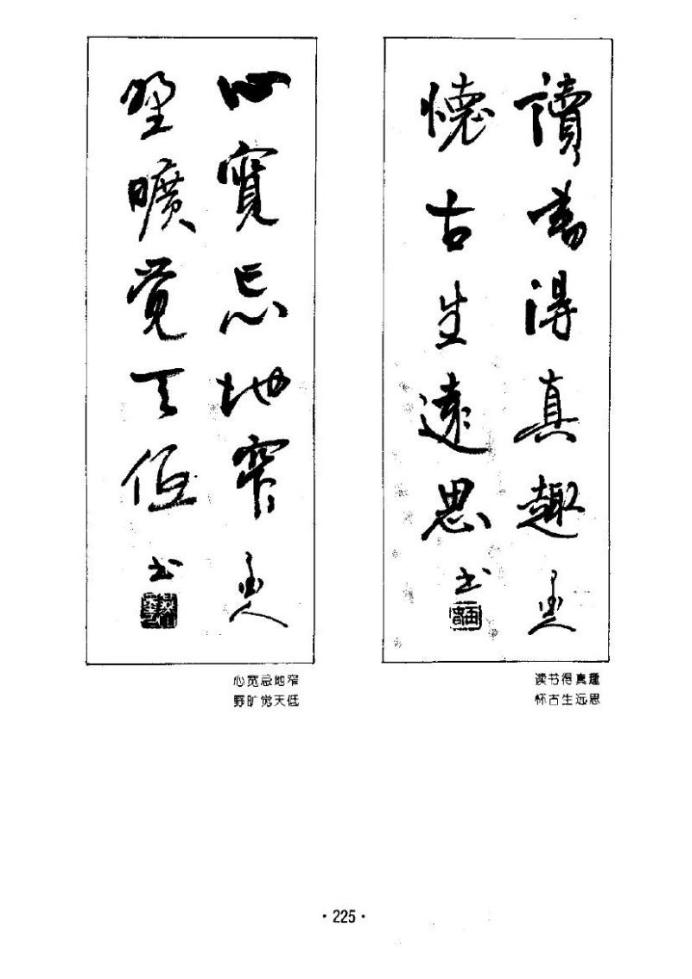 讀書得真趣
懷古生遠思
书
读书得真趣
怀古生远思
心寬忘地窄
野曠觉天低
书
心宽忘地窄
野旷觉天低
·225·